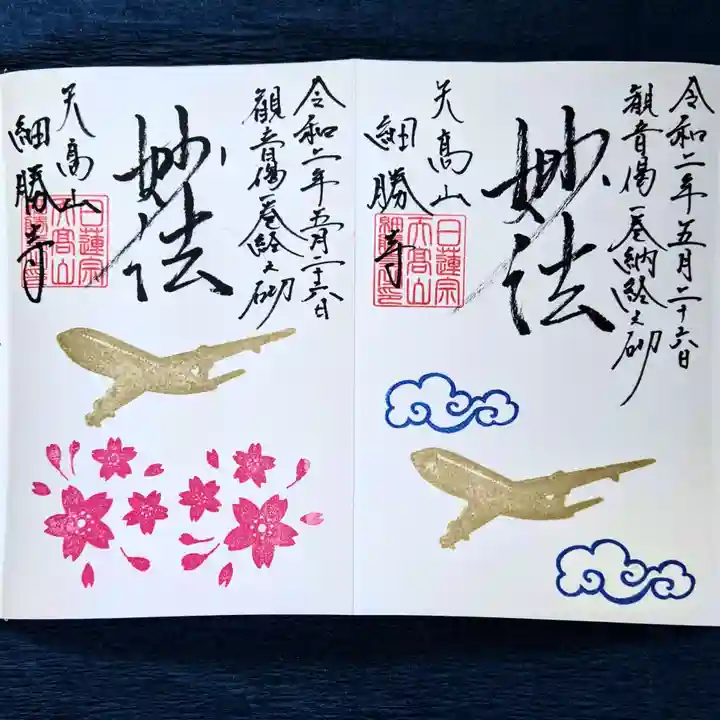 令和二年五月二十六日
観音偈一巻納経之砌
妙法
天髙山
細勝寺
日蓮宗
天髙山
細勝寺印
令和二年五月二十六日
観音偈一巻経之砌
妙法
天髙山
細勝寺
日蓮宗
天髙山
細勝寺印